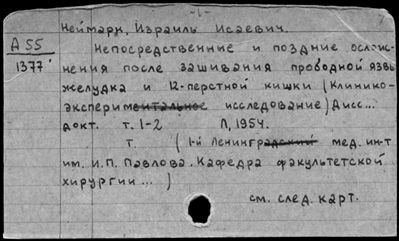 -1-
7
Неймарк, Израиль Исаевич.
А 55
1377
Непосредственные и поздние ослож-
нения после зашивания прободной язвы
желудка и 12-перстной кишки (Клинико-
экспериментальное исследование) Дисс...
докт. т. 1-2 Л, 1954.
т. (1-й Ленинградский мед. ин-т
им. И.П. Павлова. Кафедра факультетской
хирургии...)
см. след. карт.